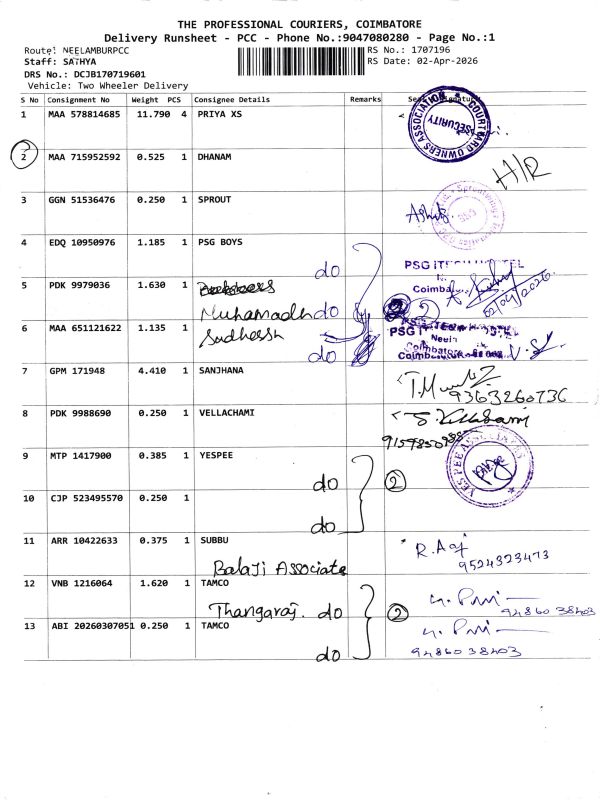 THE PROFESSIONAL COURIERS, COIMBATORE
Delivery Runsheet - PCC - Phone No.:9047080280 - Page No.:1
Route: NEELAMBURPCC
RS No.: 1707196
Staff: SATHYA
RS Date: 02-Apr-2026
DRS No.: DCJB170719601
Vehicle: Two Wheeler Delivery
S No Consignment No Weight PCS Consignee Details Remarks
1 MAA 578814685 11.790 4 PRIYA XS
COURTYARD OWNERS ASSOCIATION SECURITY
2 MAA 715952592 0.525 1 DHANAM
H/R
3 GGN 51536476 0.250 1 SPROUT
4 EDQ 10950976 1.185 1 PSG BOYS
do
PSG ITECH HOSTEL
5 PDK 9979036 1.630 1
02/04/2026
Muhamadh do
2
6 MAA 651121622 1.135 1 Sudheesh
PSG
do
Coimbatore
7 GPM 171948 4.410 1 SANJHANA
9363260736
8 PDK 9988690 0.250 1 VELLACHAMI
9 MTP 1417900 0.385 1 YESPEE
YES PEE ASSOCIATES
do
2
10 CJP 523495570 0.250 1
do
11 ARR 10422633 0.375 1 SUBBU
Balaji Associate
9524323473
12 VNB 1216064 1.620 1 TAMCO
Thangaraj. do
2
9486038403
13 ABI 20260307051 0.250 1 TAMCO
do
9486038403